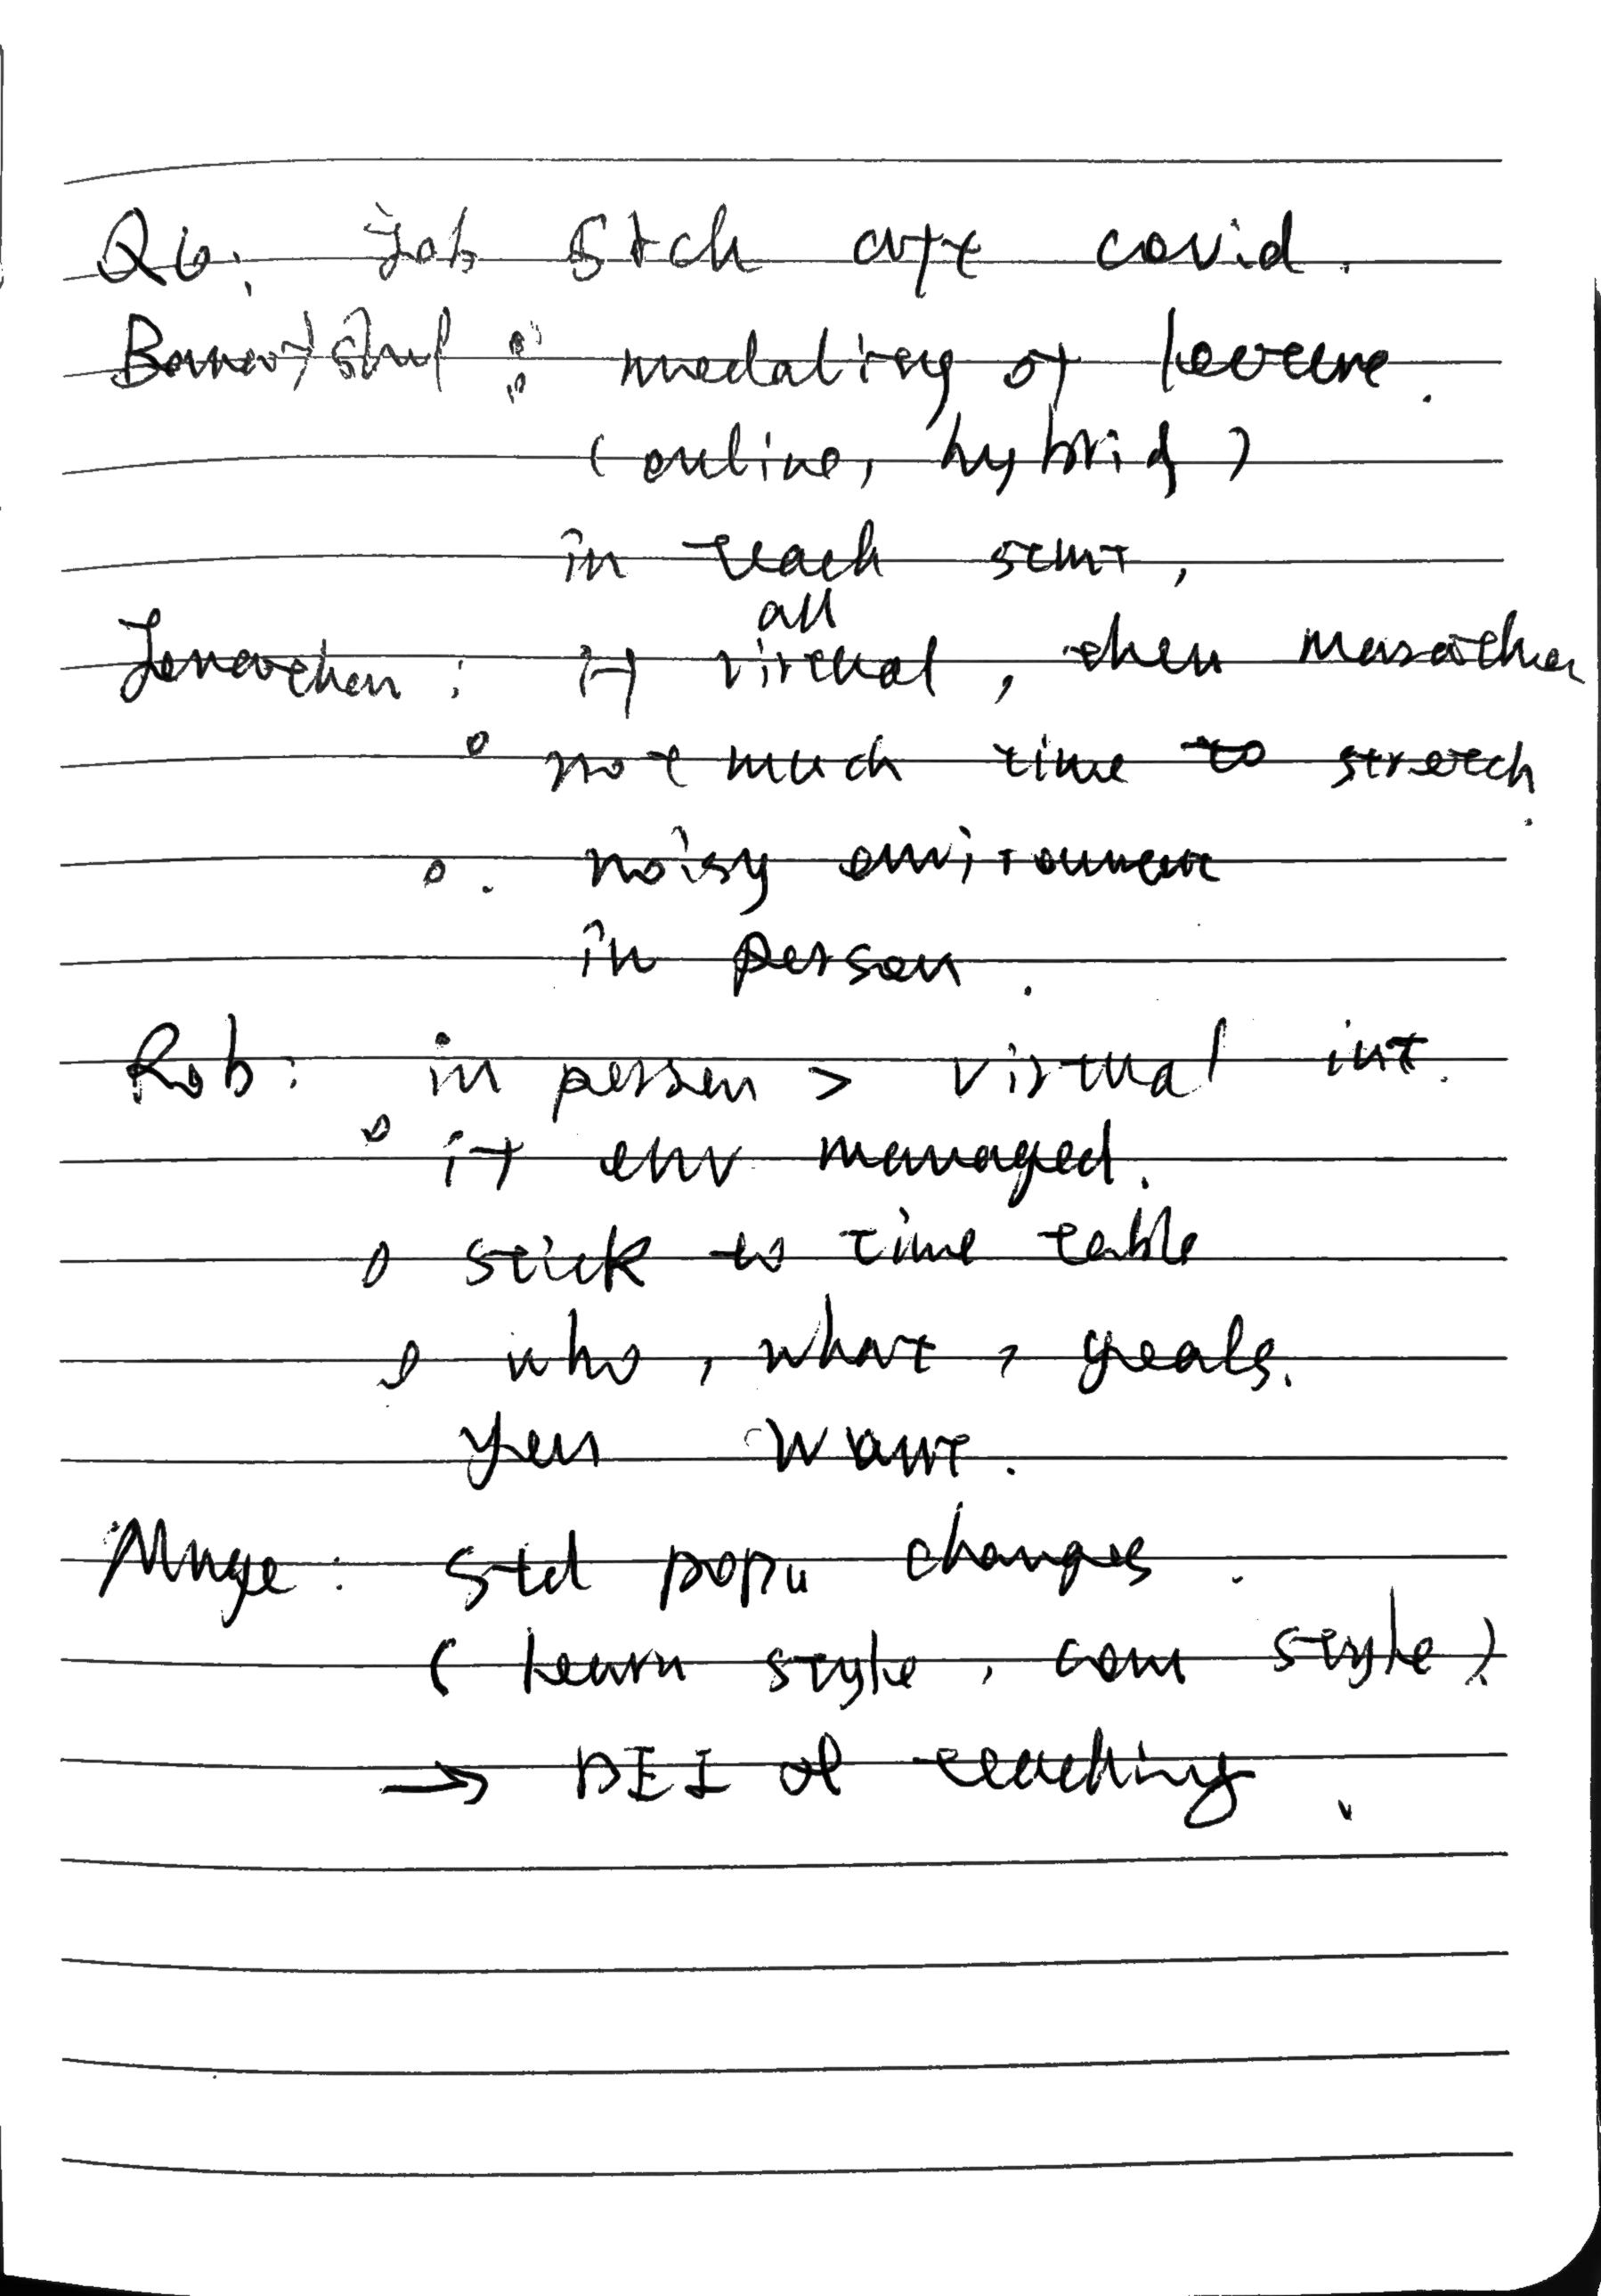 Q6: Job Srch aft covid.
: modality of lecture.
(online, hybrid)
in teach stmt,
Jonathan : if all virtual, then marathon
not much time to stretch.
noisy environment
in person.
Rob: in person > virtual int.
if env managed.
stick to time table
who, what, goals.
you want.
Muge: Std popu changes.
(learn style, com style)
→ DEI of teaching.